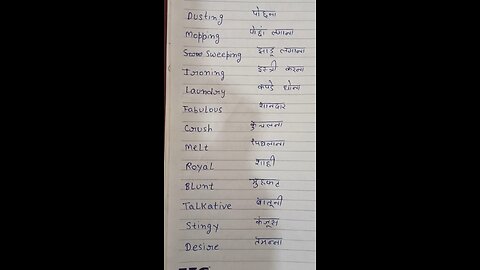 Dusting पोछना
Mopping पोछा लगाना
Sweeping झाडू लगाना
Ironing इस्त्री करना
Laundry कपडे धोना
Fabulous शानदार
Crush कुचलना
Melt पिघलाना
Royal शाही
Blunt मुँहफट
Talkative बातूनी
Stingy कंजूस
Desire तमन्ना